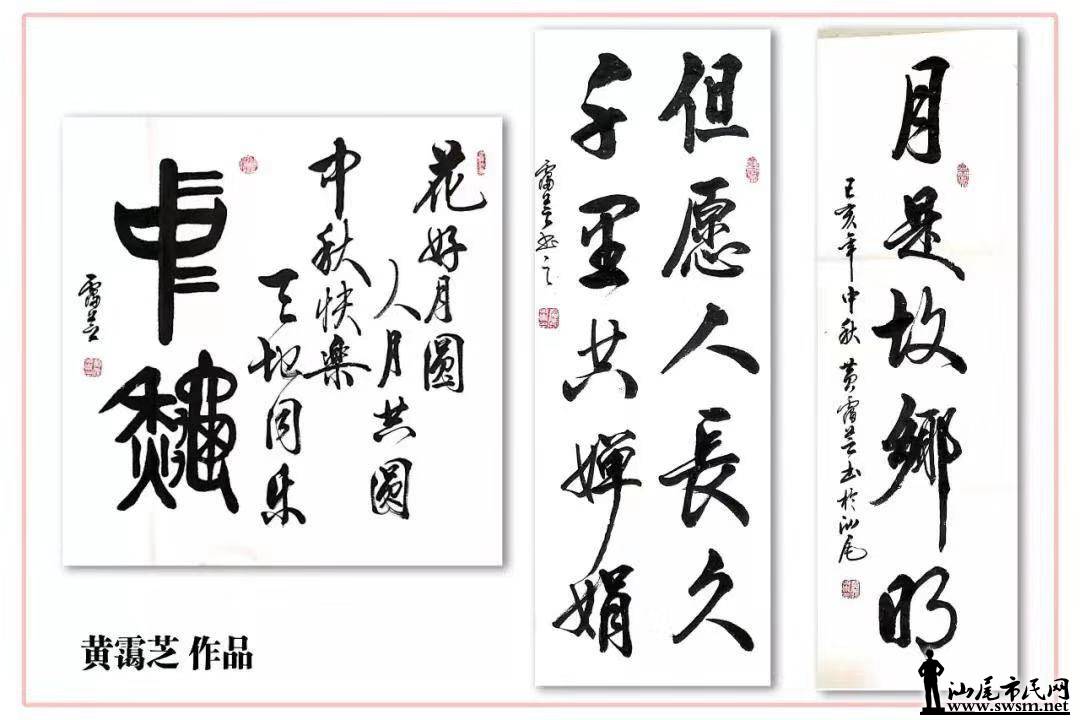 月是故鄉明
己亥年中秋 黄霭芝书於汕尾
但愿人長久
千里共婵娟
霭芝书之
花好月圓
人月共圓
中秋快樂
天地同乐
中秋
霭芝
黄霭芝 作品
汕尾市民网
www.swsm.net